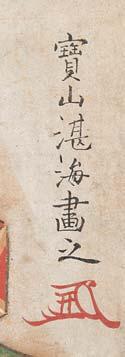 寶山湛海畫之